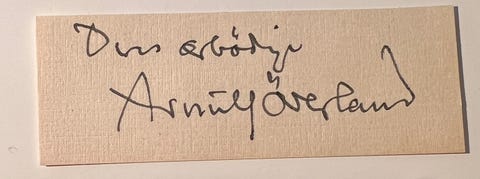 Deres ærbødige
Arnulf Överland